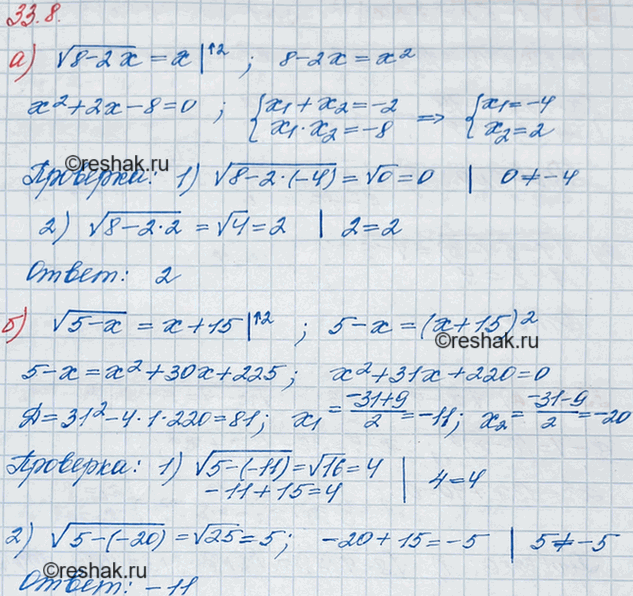 33.8.
а) √(8-2x) = x |↑2 ; 8-2x=x²
x²+2x-8=0 ; {x₁+x₂=-2 x₁·x₂=-8 => {x₁=-4 x₂=2
©reshak.ru
Проверка: 1) √(8-2·(-4)) = √0 = 0 | 0≠-4
2) √(8-2·2) = √4 = 2 | 2=2
Ответ: 2
б) √(5-x) = x+15 |↑2 ; 5-x=(x+15)²
©reshak.ru
5-x=x²+30x+225; x²+31x+220=0
Д=31²-4·1·220=81; x₁=(-31+9)/2=-11; x₂=(-31-9)/2=-20
Проверка: 1) √(5-(-11))=√16=4 | 4=4
-11+15=4
2) √(5-(-20))=√25=5; -20+15=-5 | 5≠-5
Ответ: -11